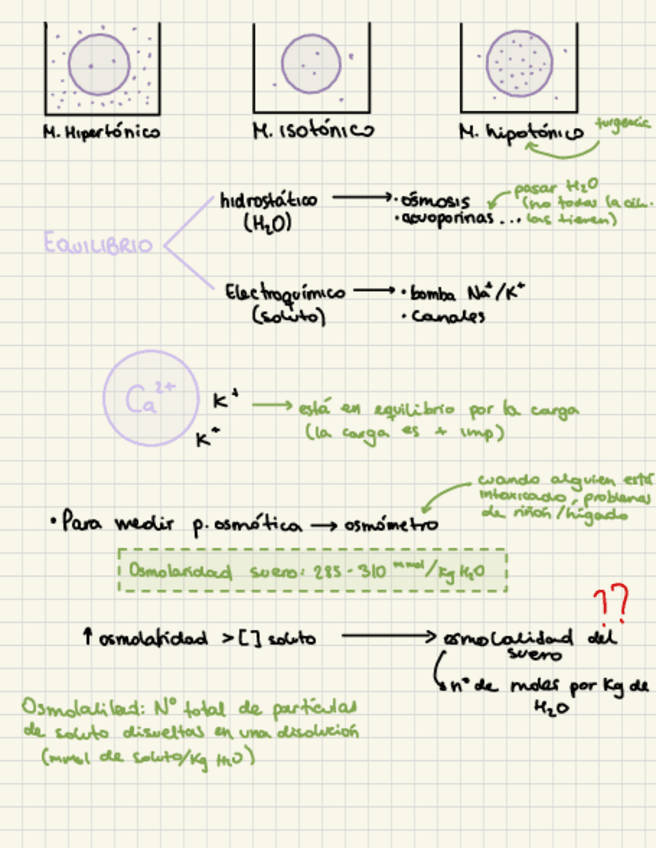 M. Hipertónico
M. Isotónico
M. hipotónico
turgencia
EQUILIBRIO
hidrostático
(H₂O)
· ósmosis
· acuoporinas ...
pasar H₂O
(no todas la cél.
las tienen)
Electroquímico
(soluto)
· bomba Na⁺/K⁺
· canales
Ca²⁺
K⁺
K⁺
está en equilibrio por la carga
(la carga es + imp)
cuando alguien está
intoxicado, problemas
de riñón/hígado
· Para medir p. osmótica → osmómetro
Osmolaridad suero: 285 - 310 mmol/Kg H₂O
??
↑ osmolaridad > [ ] soluto → osmolalidad del
suero
n° de moles por Kg de
H₂O
Osmolalidad: N° total de partículas
de soluto disueltas en una disolución
(mmol de soluto/Kg H₂O)